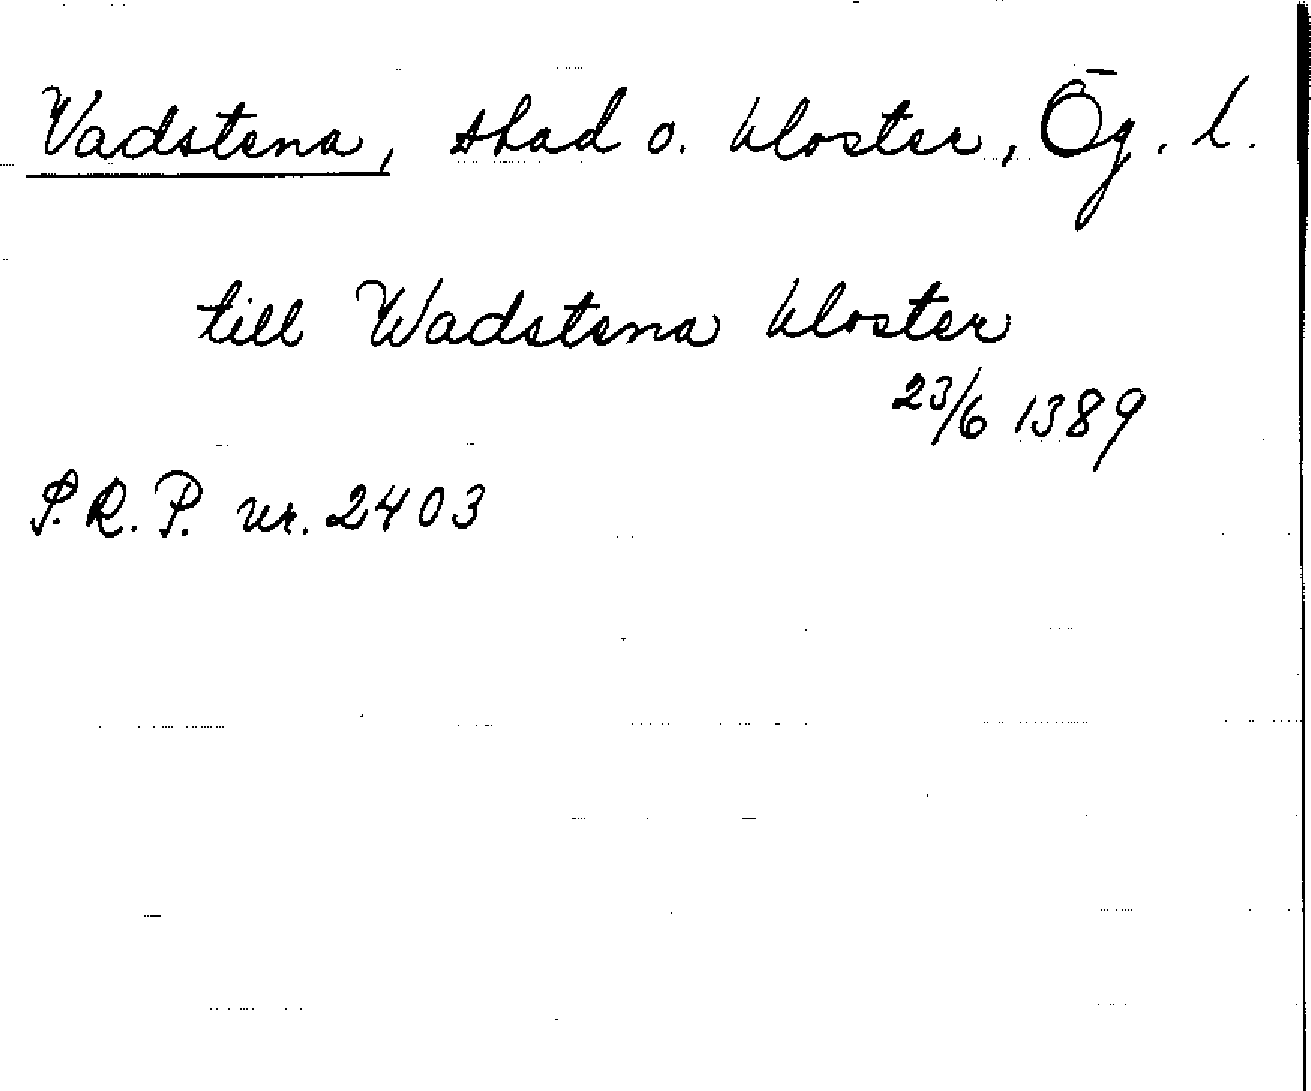 Vadstena, stad o. kloster, Ög. l.
till Wadstena kloster
23/6 1389
S.R.P. nr. 2403